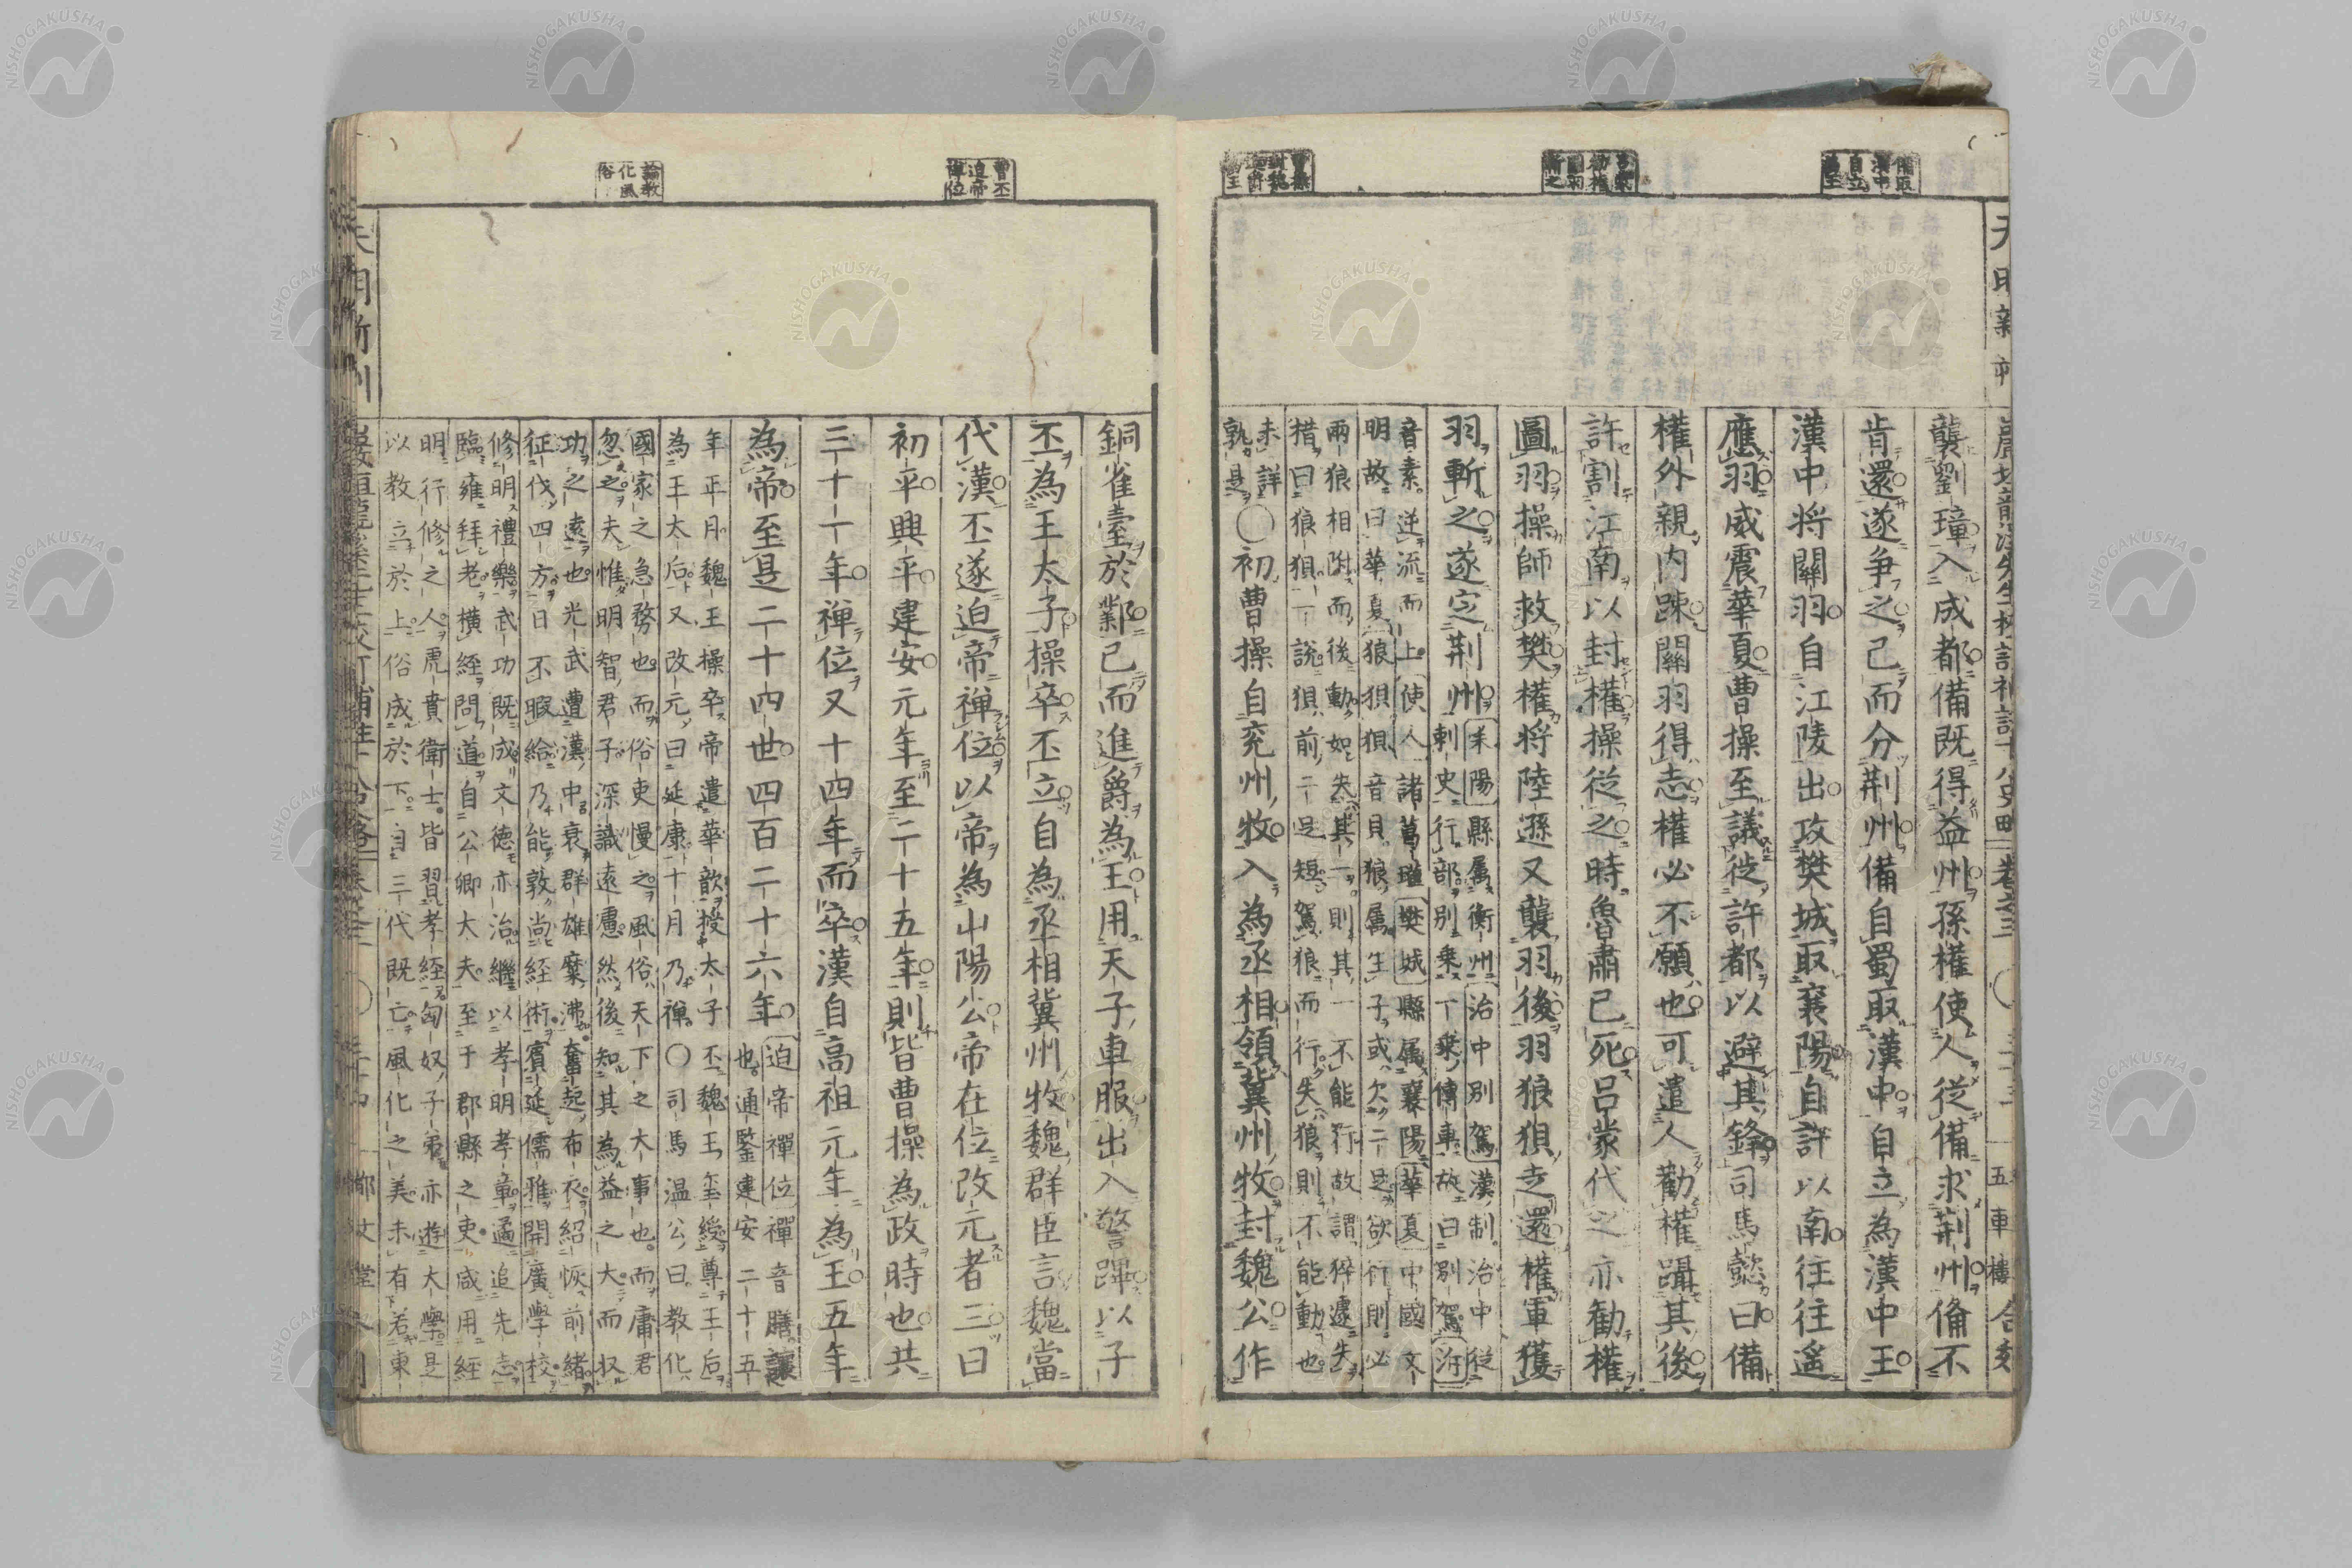 天明新刊
巖垣龍溪先生校訂補註十八史略 卷之三 ○ 三十三 五車樓合刻
備取漢中自立為王
曹操封魏進爵王
襲劉璋入成都備既得益州孫權使人從備求荊州備不
肯還遂爭之已而分荊州備自蜀取漢中自立為漢中王
漢中將關羽自江陵出攻樊城取襄陽自許以南往往遥
應羽威震華夏曹操至議徙許都以避其鋒司馬懿曰備
權外親内踈關羽得志權必不願也可遣人勸權躡其後
許割江南以封權操從之時魯肅已死呂蒙代之亦勸權
圖羽操師救樊權將陸遜又襲羽後羽狼狽走還權軍獲
羽斬之遂定荊州
耒陽縣属衡州治中別駕漢制治中從
刺史行部別乗一乗傳車故曰別駕泝
音素逆流而上使人諸葛瑾樊城縣属襄陽華夏中國文
明故曰華夏狼狽狽音貝狼屬生子或欠二足欲行則必
兩狼相附而後動如失其一則其一不能行故謂猝遽失
措曰狼狽一說狽前二足短駕狼而行失狼則不能動也
未詳
孰是
○初曹操自兖州牧入為丞相領冀州牧封魏公作
曹丕迫帝禪位
論教化風俗
銅雀臺於鄴已而進爵為王用天子車服出入警蹕以子
丕為王太子操卒丕立自為丞相冀州牧魏群臣言魏當
代漢丕遂迫帝禅位以帝為山陽公帝在位改元者三曰
初平興平建安元年至二十五年則皆曹操為政時也共
三十一年禅位又十四年而卒漢自高祖元年為王五年
為帝至是二十四世四百二十六年
迫帝禪位禪音膳讓
也通鑒建安二十五
年正月魏王操卒帝遣華歆授太子丕魏王璽綬尊王后
為王太后又改元曰延康十月乃禅○司馬温公曰教化
國家之急務也而俗吏慢之風俗天下之大事也而庸君
忽之夫惟明智君子深識遠慮然後知其為益之大而収
功之遠也光武遭漢中衰群雄糜沸奮起布衣紹恢前緒
征伐四方日不暇給乃能敦尚経術賓延儒雅開廣學校
修明禮樂武功既成文德亦治繼以孝明孝章遹追先志
臨雍拜老横経問道自公卿大夫至于郡縣之吏咸用経
明行修之人虎賁衛士皆習孝経匈奴子弟亦遊大學是
以教立於上俗成於下自三代既亡風化之美未有若東
天明新刊